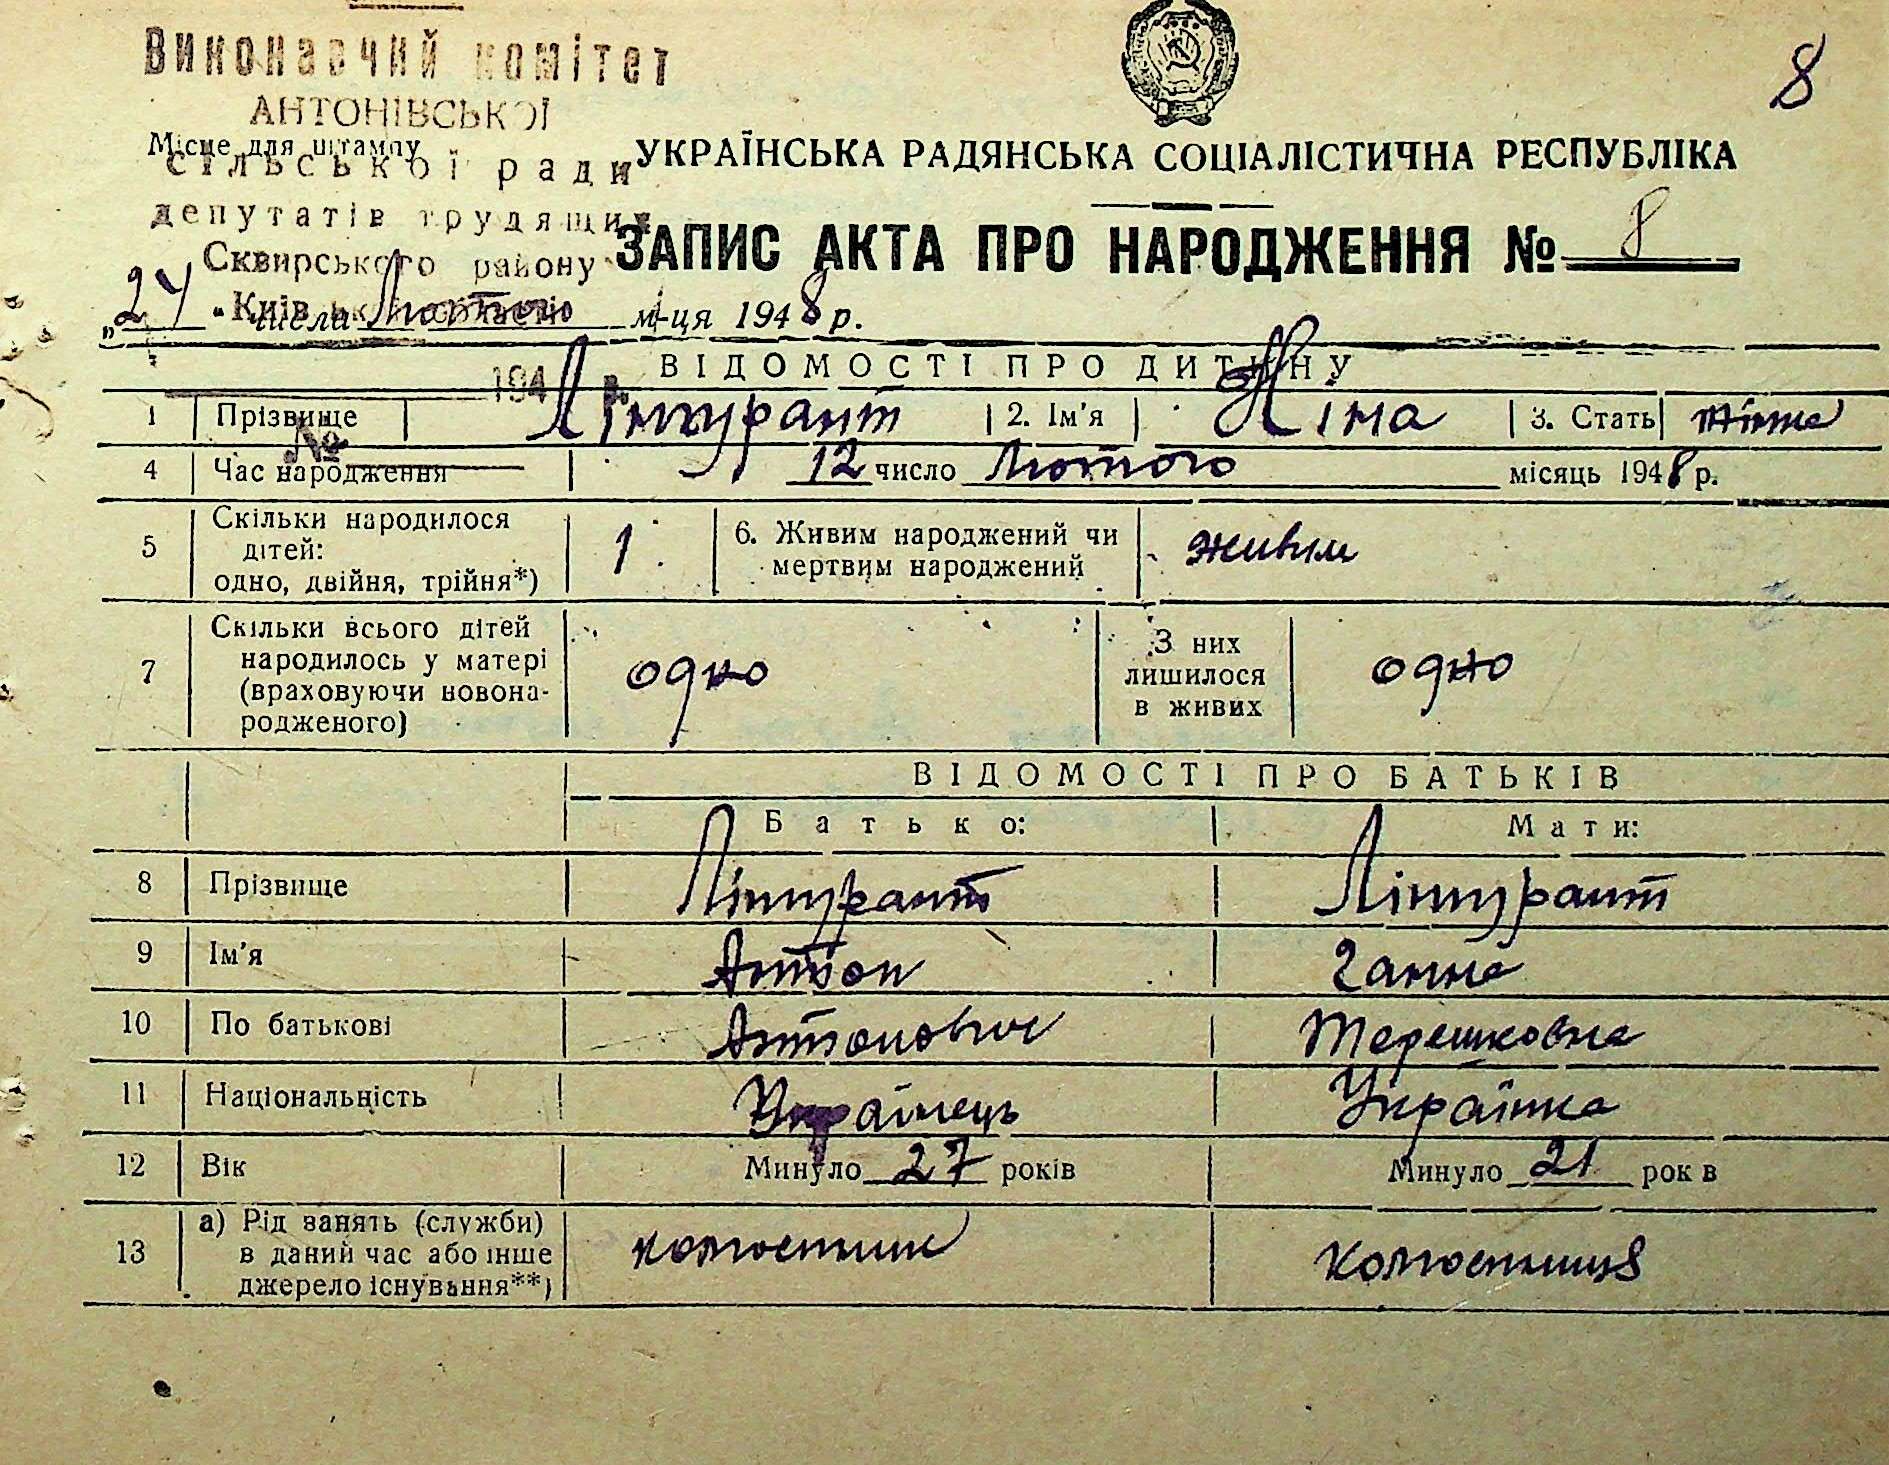 8
Виконавчий комітет
АНТОНІВСЬКОЇ
Місце для штампу
сільської ради
депутатів трудящих
Сквирського району
Київської області
194 р.
№
УКРАЇНСЬКА РАДЯНСЬКА СОЦІАЛІСТИЧНА РЕСПУБЛІКА
ЗАПИС АКТА ПРО НАРОДЖЕННЯ № 8
„24" числа Лютого м-ця 1948 р.
ВІДОМОСТІ ПРО ДИТИНУ
1 Прізвище Лінтурант 2. Ім'я Ніна 3. Стать
4 Час народження 12 число Лютого місяць 1948 р.
5 Скільки народилося дітей: одно, двійня, трійня*) 1 6. Живим народжений чи мертвим народжений живим
7 Скільки всього дітей народилось у матері (враховуючи новонародженого) одно З них лишилося в живих одно
ВІДОМОСТІ ПРО БАТЬКІВ
Батько: Мати:
8 Прізвище Лінтурант Лінтурант
9 Ім'я Антон Ганна
10 По батькові Антонович Терешковна
11 Національність Українець Українка
12 Вік Минуло 27 років Минуло 21 рок в
13 а) Рід занять (служби) в даний час або інше джерело існування**) колгоспник колгоспниця